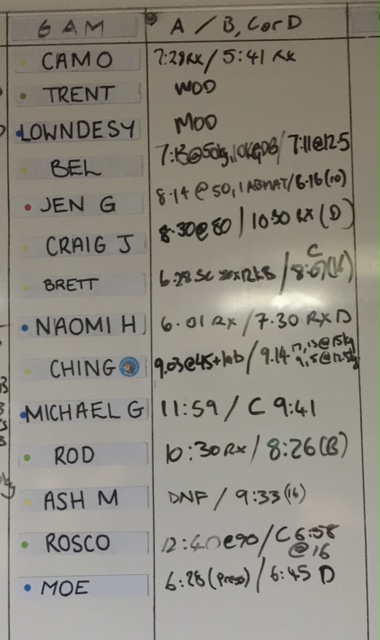 6 AM A / B, C or D
CAMO 7:29 RX / 5:41 RX
TRENT WOD
LOWNDESY MOD
BEL 7:13@50kg, 10KGDB / 7:11@12.5
JEN G 8:14 @ 50, 1 ABMAT / 6:16 (10)
CRAIG J 8:30@80 / 10:50 RX (D)
BRETT 6:28 SC / C
NAOMI H 6.01 RX / 7.30 RX D
CHING 9.03@45+1ab / 9.14 17,13@15kg
9,5@12.5kg
MICHAEL G 11:59 / C 9:41
ROD 10:30 RX / 8:26 (B)
ASH M DNF / 9:33 (16)
ROSCO 12:40@90 / C 6:58
@16
MOE 6:28 (Press) / 6:45 D